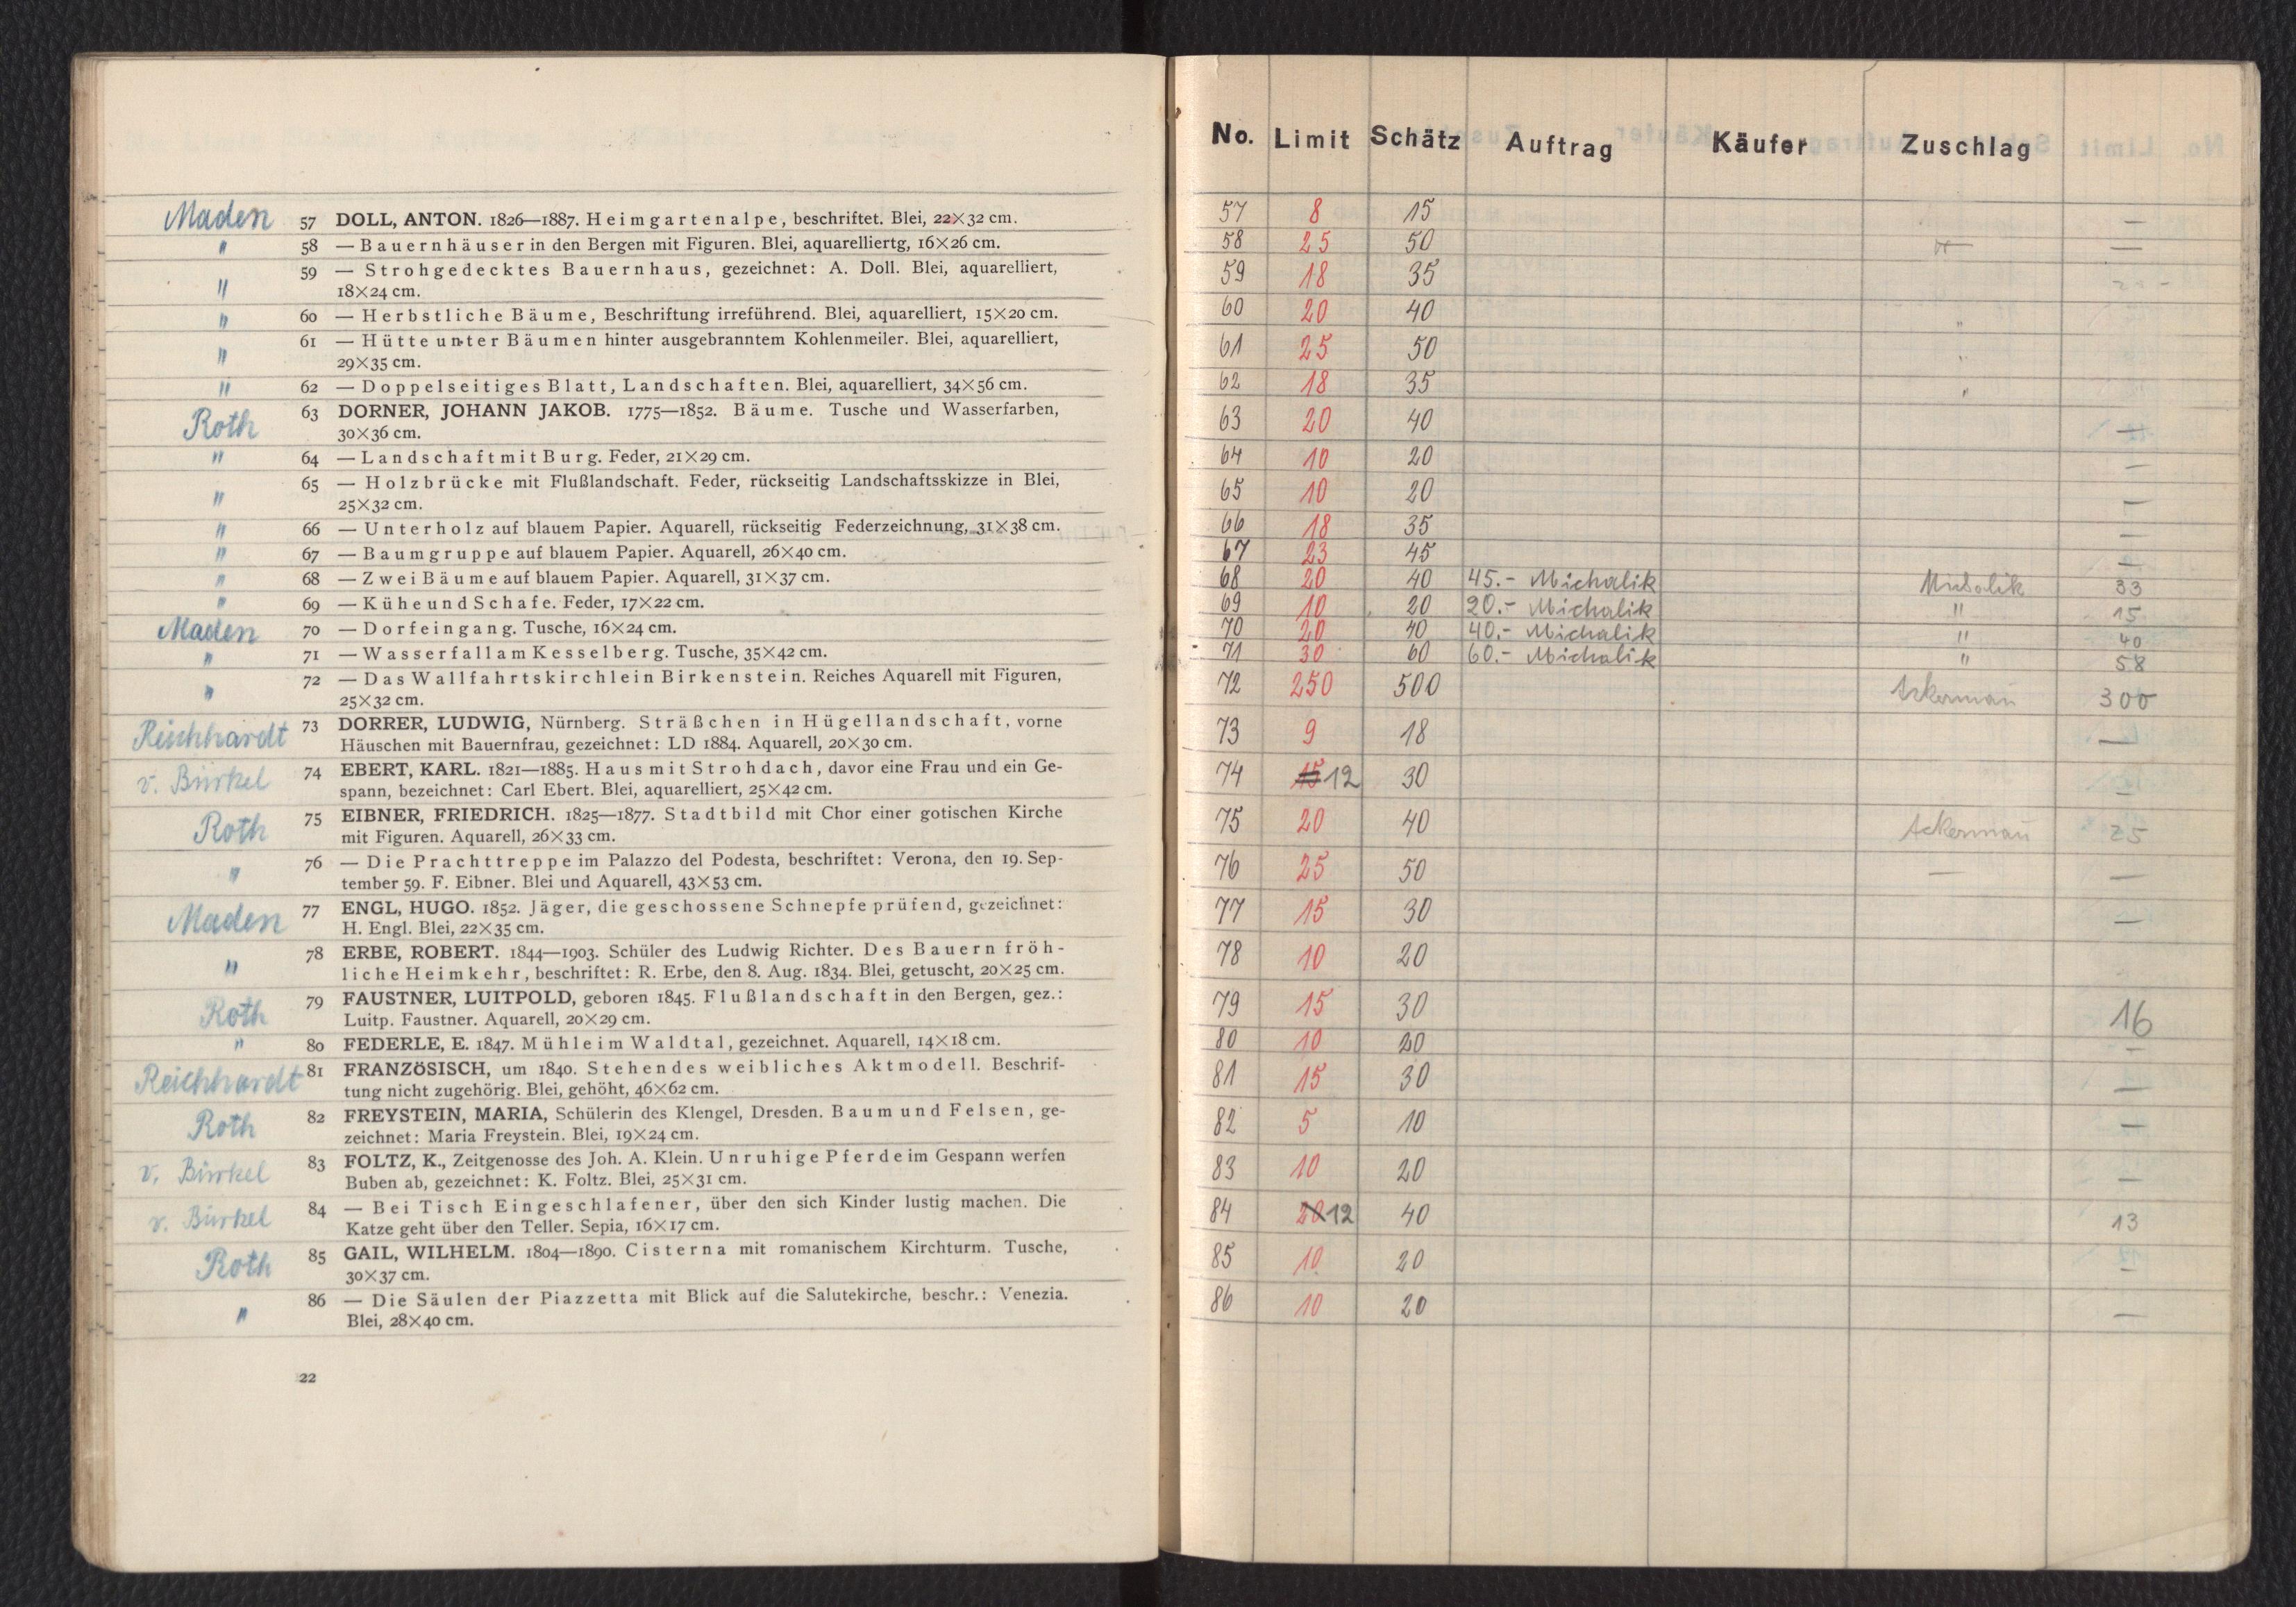 Maden 57 DOLL, ANTON. 1826—1887. Heimgartenalpe, beschriftet. Blei, 22×32 cm.
" 58 — Bauernhäuser in den Bergen mit Figuren. Blei, aquarelliertg, 16×26 cm.
59 — Strohgedecktes Bauernhaus, gezeichnet: A. Doll. Blei, aquarelliert,
" 18×24 cm.
" 60 — Herbstliche Bäume, Beschriftung irreführend. Blei, aquarelliert, 15×20 cm.
61 — Hütte unter Bäumen hinter ausgebranntem Kohlenmeiler. Blei, aquarelliert,
" 29×35 cm.
" 62 — Doppelseitiges Blatt, Landschaften. Blei, aquarelliert, 34×56 cm.
63 DORNER, JOHANN JAKOB. 1775—1852. Bäume. Tusche und Wasserfarben,
Roth 30×36 cm.
" 64 — Landschaft mit Burg. Feder, 21×29 cm.
65 — Holzbrücke mit Flußlandschaft. Feder, rückseitig Landschaftsskizze in Blei,
" 25×32 cm.
" 66 — Unterholz auf blauem Papier. Aquarell, rückseitig Federzeichnung, 31×38 cm.
" 67 — Baumgruppe auf blauem Papier. Aquarell, 26×40 cm.
" 68 — Zwei Bäume auf blauem Papier. Aquarell, 31×37 cm.
" 69 — Kühe und Schafe. Feder, 17×22 cm.
Maden 70 — Dorfeingang. Tusche, 16×24 cm.
" 71 — Wasserfall am Kesselberg. Tusche, 35×42 cm.
72 — Das Wallfahrtskirchlein Birkenstein. Reiches Aquarell mit Figuren,
" 25×32 cm.
Reichhardt 73 DORRER, LUDWIG, Nürnberg. Sträßchen in Hügellandschaft, vorne
Häuschen mit Bauernfrau, gezeichnet: LD 1884. Aquarell, 20×30 cm.
v. Bürkel 74 EBERT, KARL. 1821—1885. Haus mit Strohdach, davor eine Frau und ein Ge-
spann, bezeichnet: Carl Ebert. Blei, aquarelliert, 25×42 cm.
Roth 75 EIBNER, FRIEDRICH. 1825—1877. Stadtbild mit Chor einer gotischen Kirche
mit Figuren. Aquarell, 26×33 cm.
" 76 — Die Prachttreppe im Palazzo del Podesta, beschriftet: Verona, den 19. Sep-
tember 59. F. Eibner. Blei und Aquarell, 43×53 cm.
Maden 77 ENGL, HUGO. 1852. Jäger, die geschossene Schnepfe prüfend, gezeichnet:
H. Engl. Blei, 22×35 cm.
" 78 ERBE, ROBERT. 1844—1903. Schüler des Ludwig Richter. Des Bauern fröh-
liche Heimkehr, beschriftet: R. Erbe, den 8. Aug. 1834. Blei, getuscht, 20×25 cm.
Roth 79 FAUSTNER, LUITPOLD, geboren 1845. Flußlandschaft in den Bergen, gez.:
Luitp. Faustner. Aquarell, 20×29 cm.
" 80 FEDERLE, E. 1847. Mühle im Waldtal, gezeichnet. Aquarell, 14×18 cm.
Reichhardt 81 FRANZÖSISCH, um 1840. Stehendes weibliches Aktmodell. Beschrif-
tung nicht zugehörig. Blei, gehöht, 46×62 cm.
Roth 82 FREYSTEIN, MARIA, Schülerin des Klengel, Dresden. Baum und Felsen, ge-
zeichnet: Maria Freystein. Blei, 19×24 cm.
v. Bürkel 83 FOLTZ, K., Zeitgenosse des Joh. A. Klein. Unruhige Pferde im Gespann werfen
Buben ab, gezeichnet: K. Foltz. Blei, 25×31 cm.
v. Bürkel 84 — Bei Tisch Eingeschlafener, über den sich Kinder lustig machen. Die
Katze geht über den Teller. Sepia, 16×17 cm.
Roth 85 GAIL, WILHELM. 1804—1890. Cisterna mit romanischem Kirchturm. Tusche,
30×37 cm.
86 — Die Säulen der Piazzetta mit Blick auf die Salutekirche, beschr.: Venezia.
" Blei, 28×40 cm.
22
No. Limit Schätz Auftrag Käufer Zuschlag
57 8 15 —
58 25 50 —
59 18 35
60 20 40 "
61 25 50 "
62 18 35 "
63 20 40 —
64 10 20 —
65 10 20 —
66 18 35 —
67 23 45 —
68 20 40 45.- Michalik Michalik 33
69 10 20 20.- Michalik " 15
70 20 40 40.- Michalik " 40
71 30 60 60.- Michalik " 58
72 250 500 Ackerman 300
73 9 18 —
74 15 12 30 —
75 20 40 Ackerman 25
76 25 50 — —
77 15 30 —
78 10 20
79 15 30 16
80 10 20 —
81 15 30 —
82 5 10 —
83 10 20 —
84 20 12 40 13
85 10 20 —
86 10 20 —